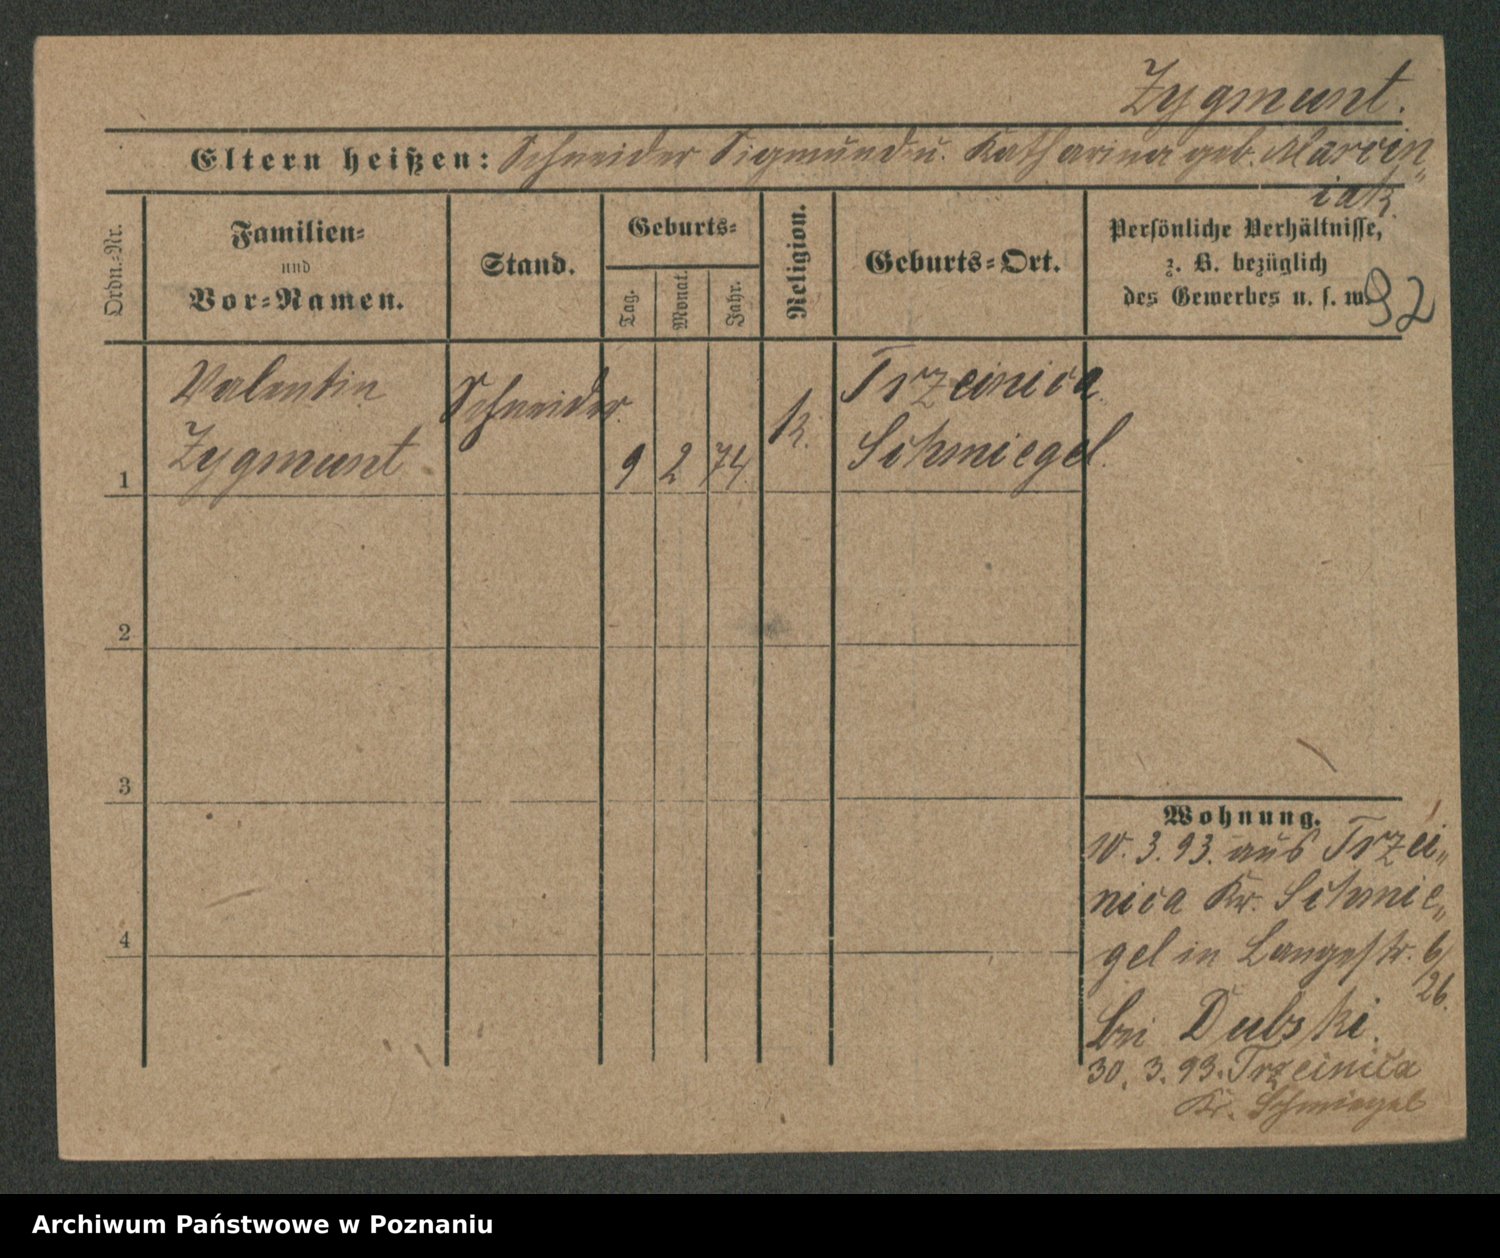 Zygmunt.
Eltern heißen: Schneider Sigmund u. Katharina geb. Marcin„
iak.
Ordn.=Nr.
Familien=
und
Vor=Namen.
Stand.
Geburts=
Tag.
Monat.
Jahr.
Religion.
Geburts=Ort.
Persönliche Verhältnisse,
z. B. bezüglich
des Gewerbes u. s. w.
92
Valentin
Zygmunt
Schneider.
9 2 74
k.
Trzcinica
Schmiegel.
1
2
3
4
Wohnung.
10. 3. 93. aus Trzci„
nica Kr. Schmie„
gel in Langestr. 6/
26.
bei Dubski.
30. 3. 93. Trzcinica
Kr. Schmiegel
Archiwum Państwowe w Poznaniu